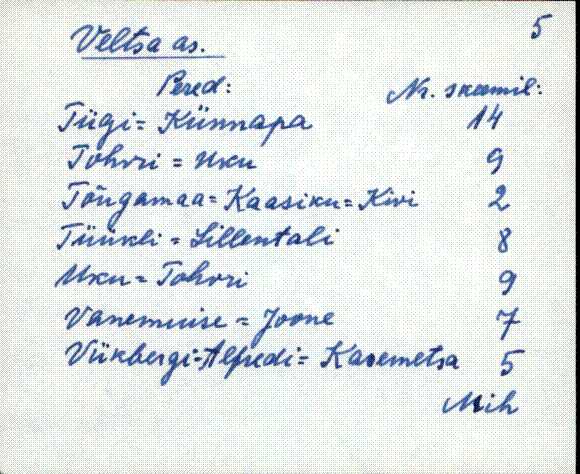 5
Veltsa as.
Pered: Nr. skeemil:
Tiigi = Künnapa 14
Tohvri = Uku 9
Tõugamaa = Kaasiku = Kivi 2
Tüükli = Lillentali 8
Uku = Tohvri 9
Vanemuise = Joone 7
Viikbergi = Alfredi = Kasemetsa 5
Mih